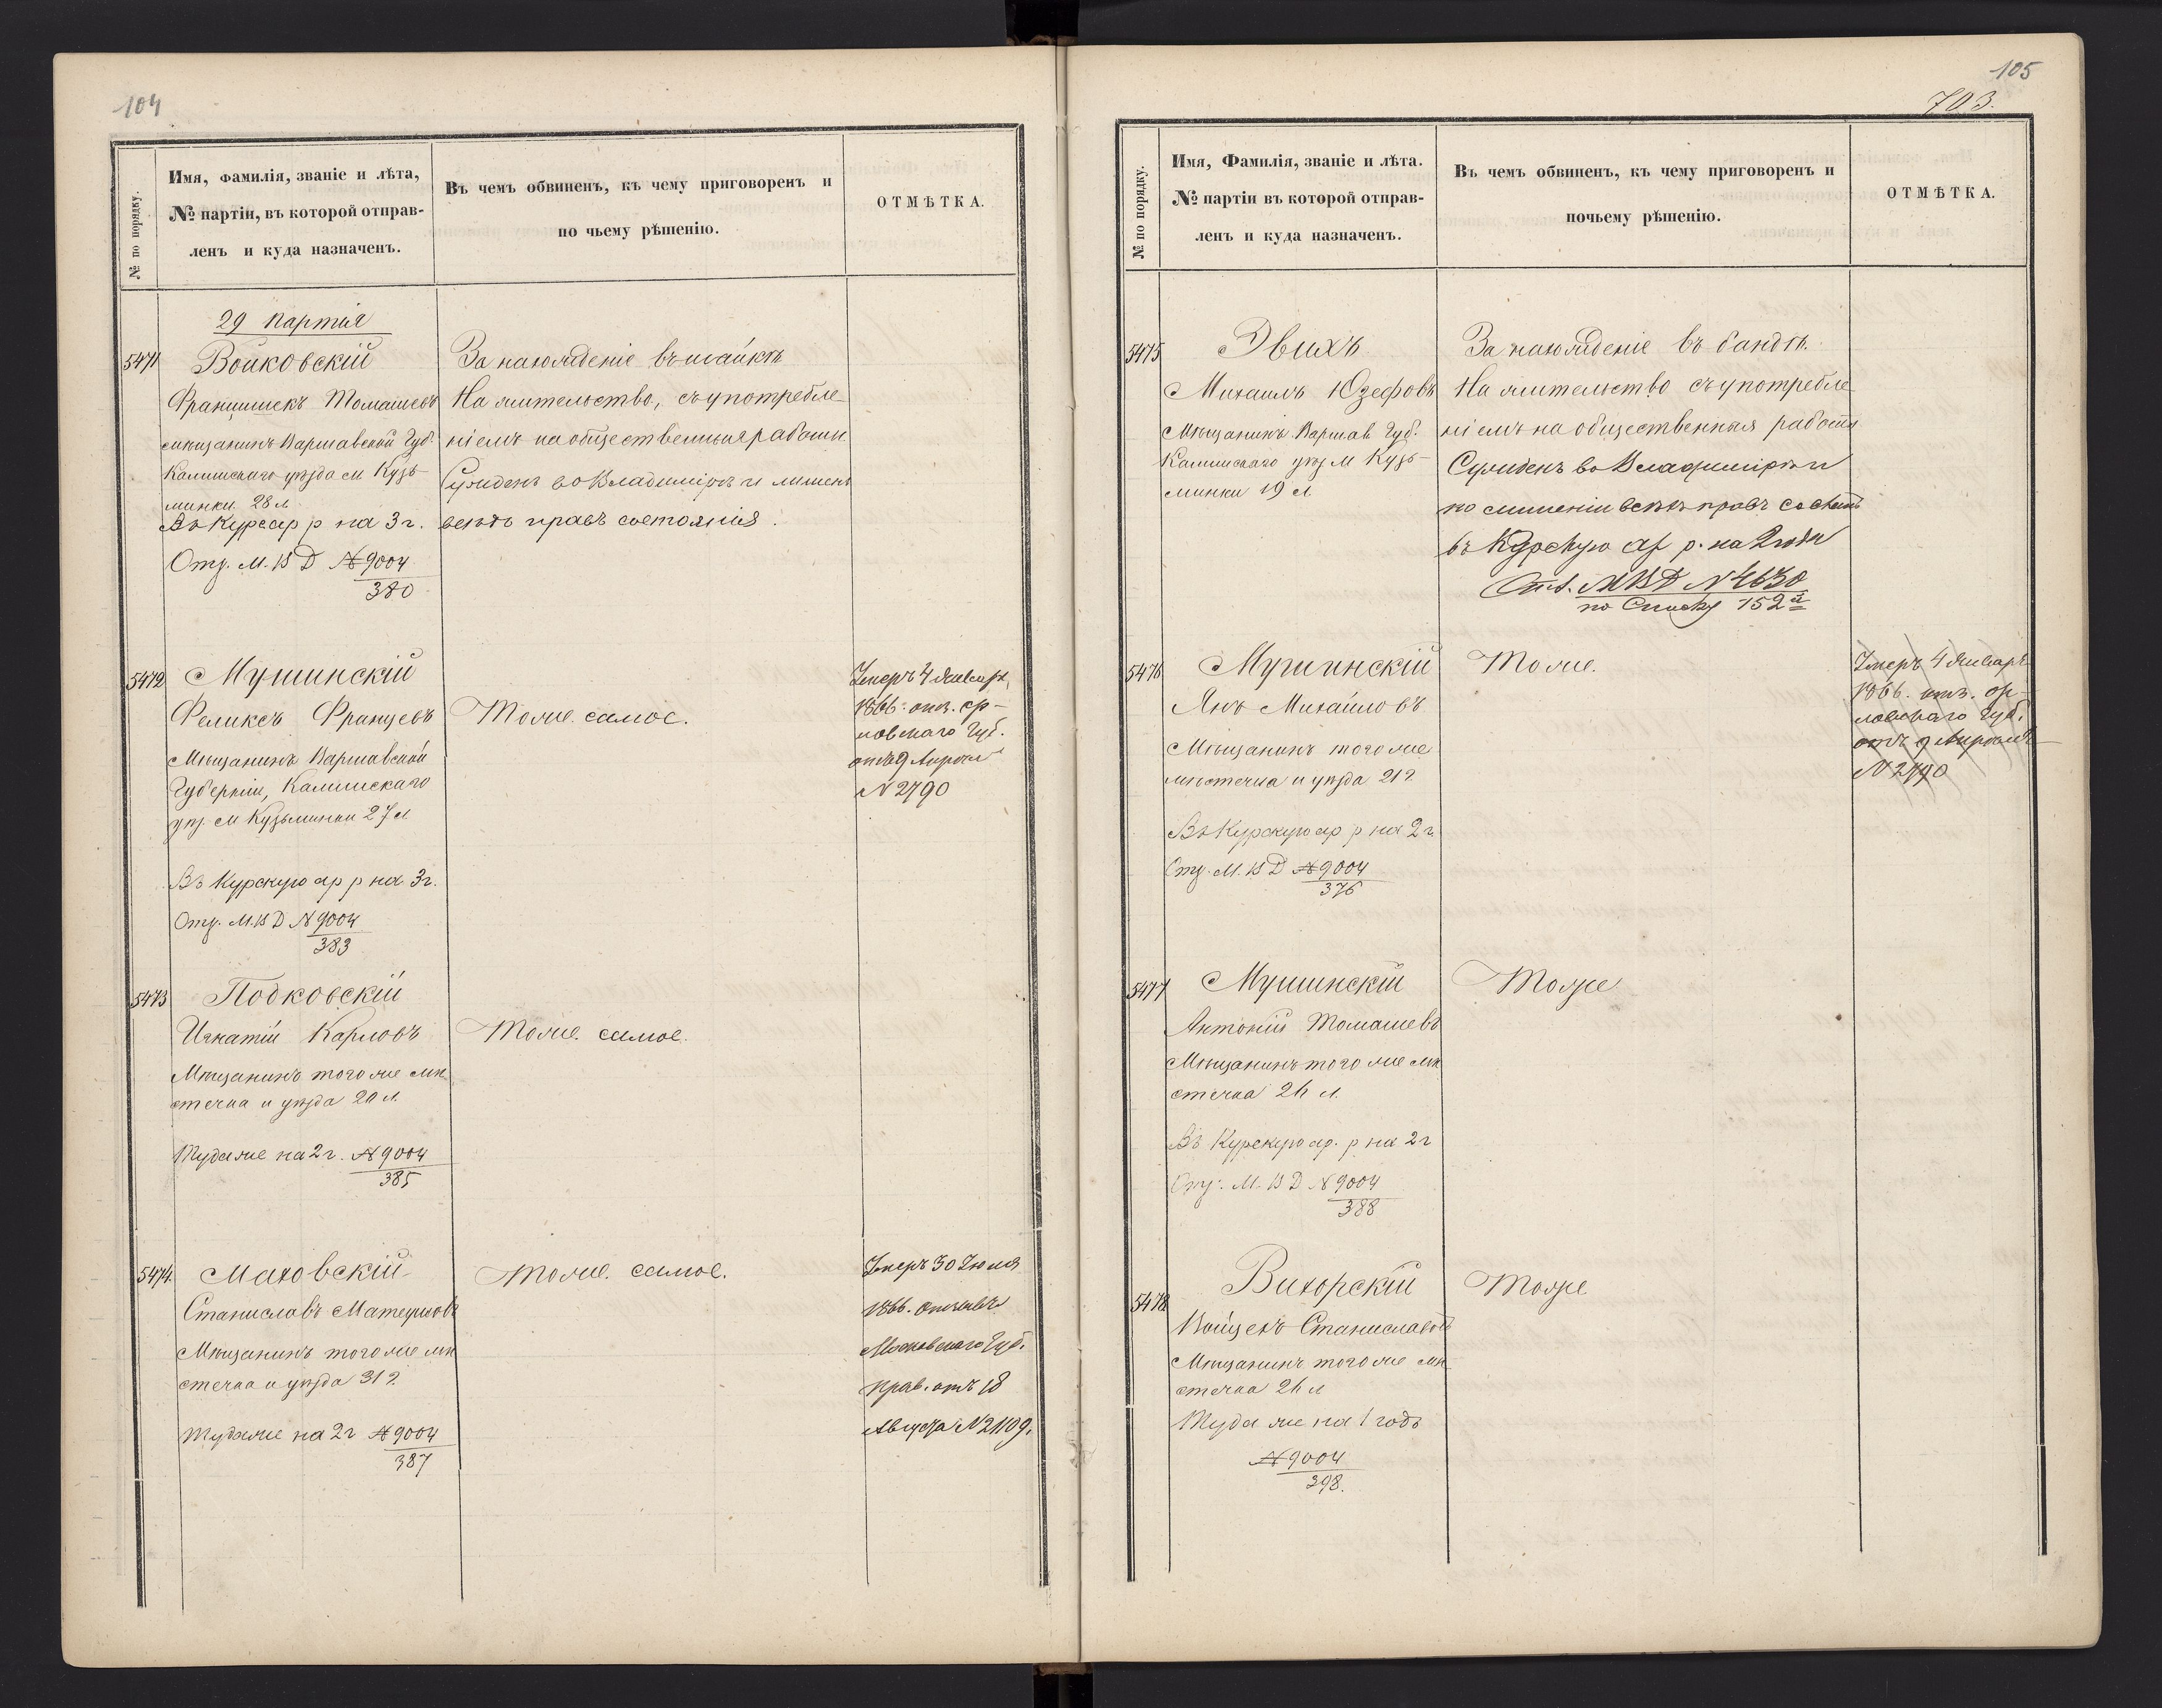 104
№ по порядку.
Имя, фамилія, званіе и лѣта,
№ партіи, въ которой отправ-
ленъ и куда назначенъ.
Въ чемъ обвиненъ, къ чему приговоренъ и
по чьему рѣшенію.
ОТМѢТКА.
29 партия
5471
Войковскій
Францишекъ Томашевъ
мѣщанинъ Варшавской Губ.
Калишскаго уѣзда м Кузь-
минки 28 л
Въ Курс ар р на 3 г.
Отз. М. В Д № 9004
380
За нахожденіе въ шайкѣ
На жительство, съ употребле-
ніемъ на общественныя работы
Сужденъ во Владимірѣ и лишенъ
всѣхъ правъ состоянія.
5472
Мушинскій
Феликсъ Францевъ
Мѣщанинъ Варшавской
Губерніи, Калишскаго
уѣз. м Кузьминки 27 л
Въ Курскую ар р на 3 г.
Отз. М. В Д № 9004
383
Тоже самое.
Умеръ 4 Января
1866. отз. ор-
ловскаго Губ.
отъ 9 Апрѣля
№ 2790
5473
Подковскій
Игнатій Карловъ
Мѣщанинъ того же мѣ
стечка и уѣзда 20 л.
Туда же на 2 г. № 9004
385
Тоже самое.
5474
Маховскій
Станиславъ Матеушовъ
Мѣщанинъ того же мѣ
стечка и уѣзда 31 г.
Туда же на 2 г № 9004
387
Тоже самое.
Умеръ 30 Іюля
1866. отзывъ
Московскаго Губ.
Прав. отъ 18
Августа № 21109.
105
703.
№ по порядку.
Имя, Фамилія, званіе и лѣта.
№ партіи въ которой отправ-
ленъ и куда назначенъ.
Въ чемъ обвиненъ, къ чему приговоренъ и
почьему рѣшенію.
ОТМѢТКА.
5475
Эвихъ
Михаилъ Юзефовъ
Мѣщанинъ Варшав Губ.
Калишскаго уѣз м Кузь-
минки 19 л.
За нахожденіе въ бандѣ.
На жительство съ употребле
ніемъ на общественныя работы
Сужденъ во Владимірѣ и
по лишеніи всѣхъ правъ сост
въ Курскую ар р. на 2 года
Отз. МВД № 4630
по Списку 152й
5476
Мушинскій
Янъ Михайловъ
Мѣщанинъ того же
мѣстечка и уѣзда 21 г
Въ Курскую ар р на 2 г.
Отз. М. В Д № 9004
376
Тоже.
Умеръ 4 Января
1866. отз. ор-
ловскаго Губ.
отъ 9 Апрѣля
№ 2790
5477
Мушинскій
Антоній Томашевъ
Мѣщанинъ того же мѣ
стечка 26 л.
Въ Курскую ар. р на 2 г
Отз. М. В Д № 9004
388
Тоже
5478
Вихорскій
Войцехъ Станиславовъ
Мѣщанинъ того же мѣ-
стечка 26 л
Туда же на 1 годъ
№ 9004
398.
Тоже